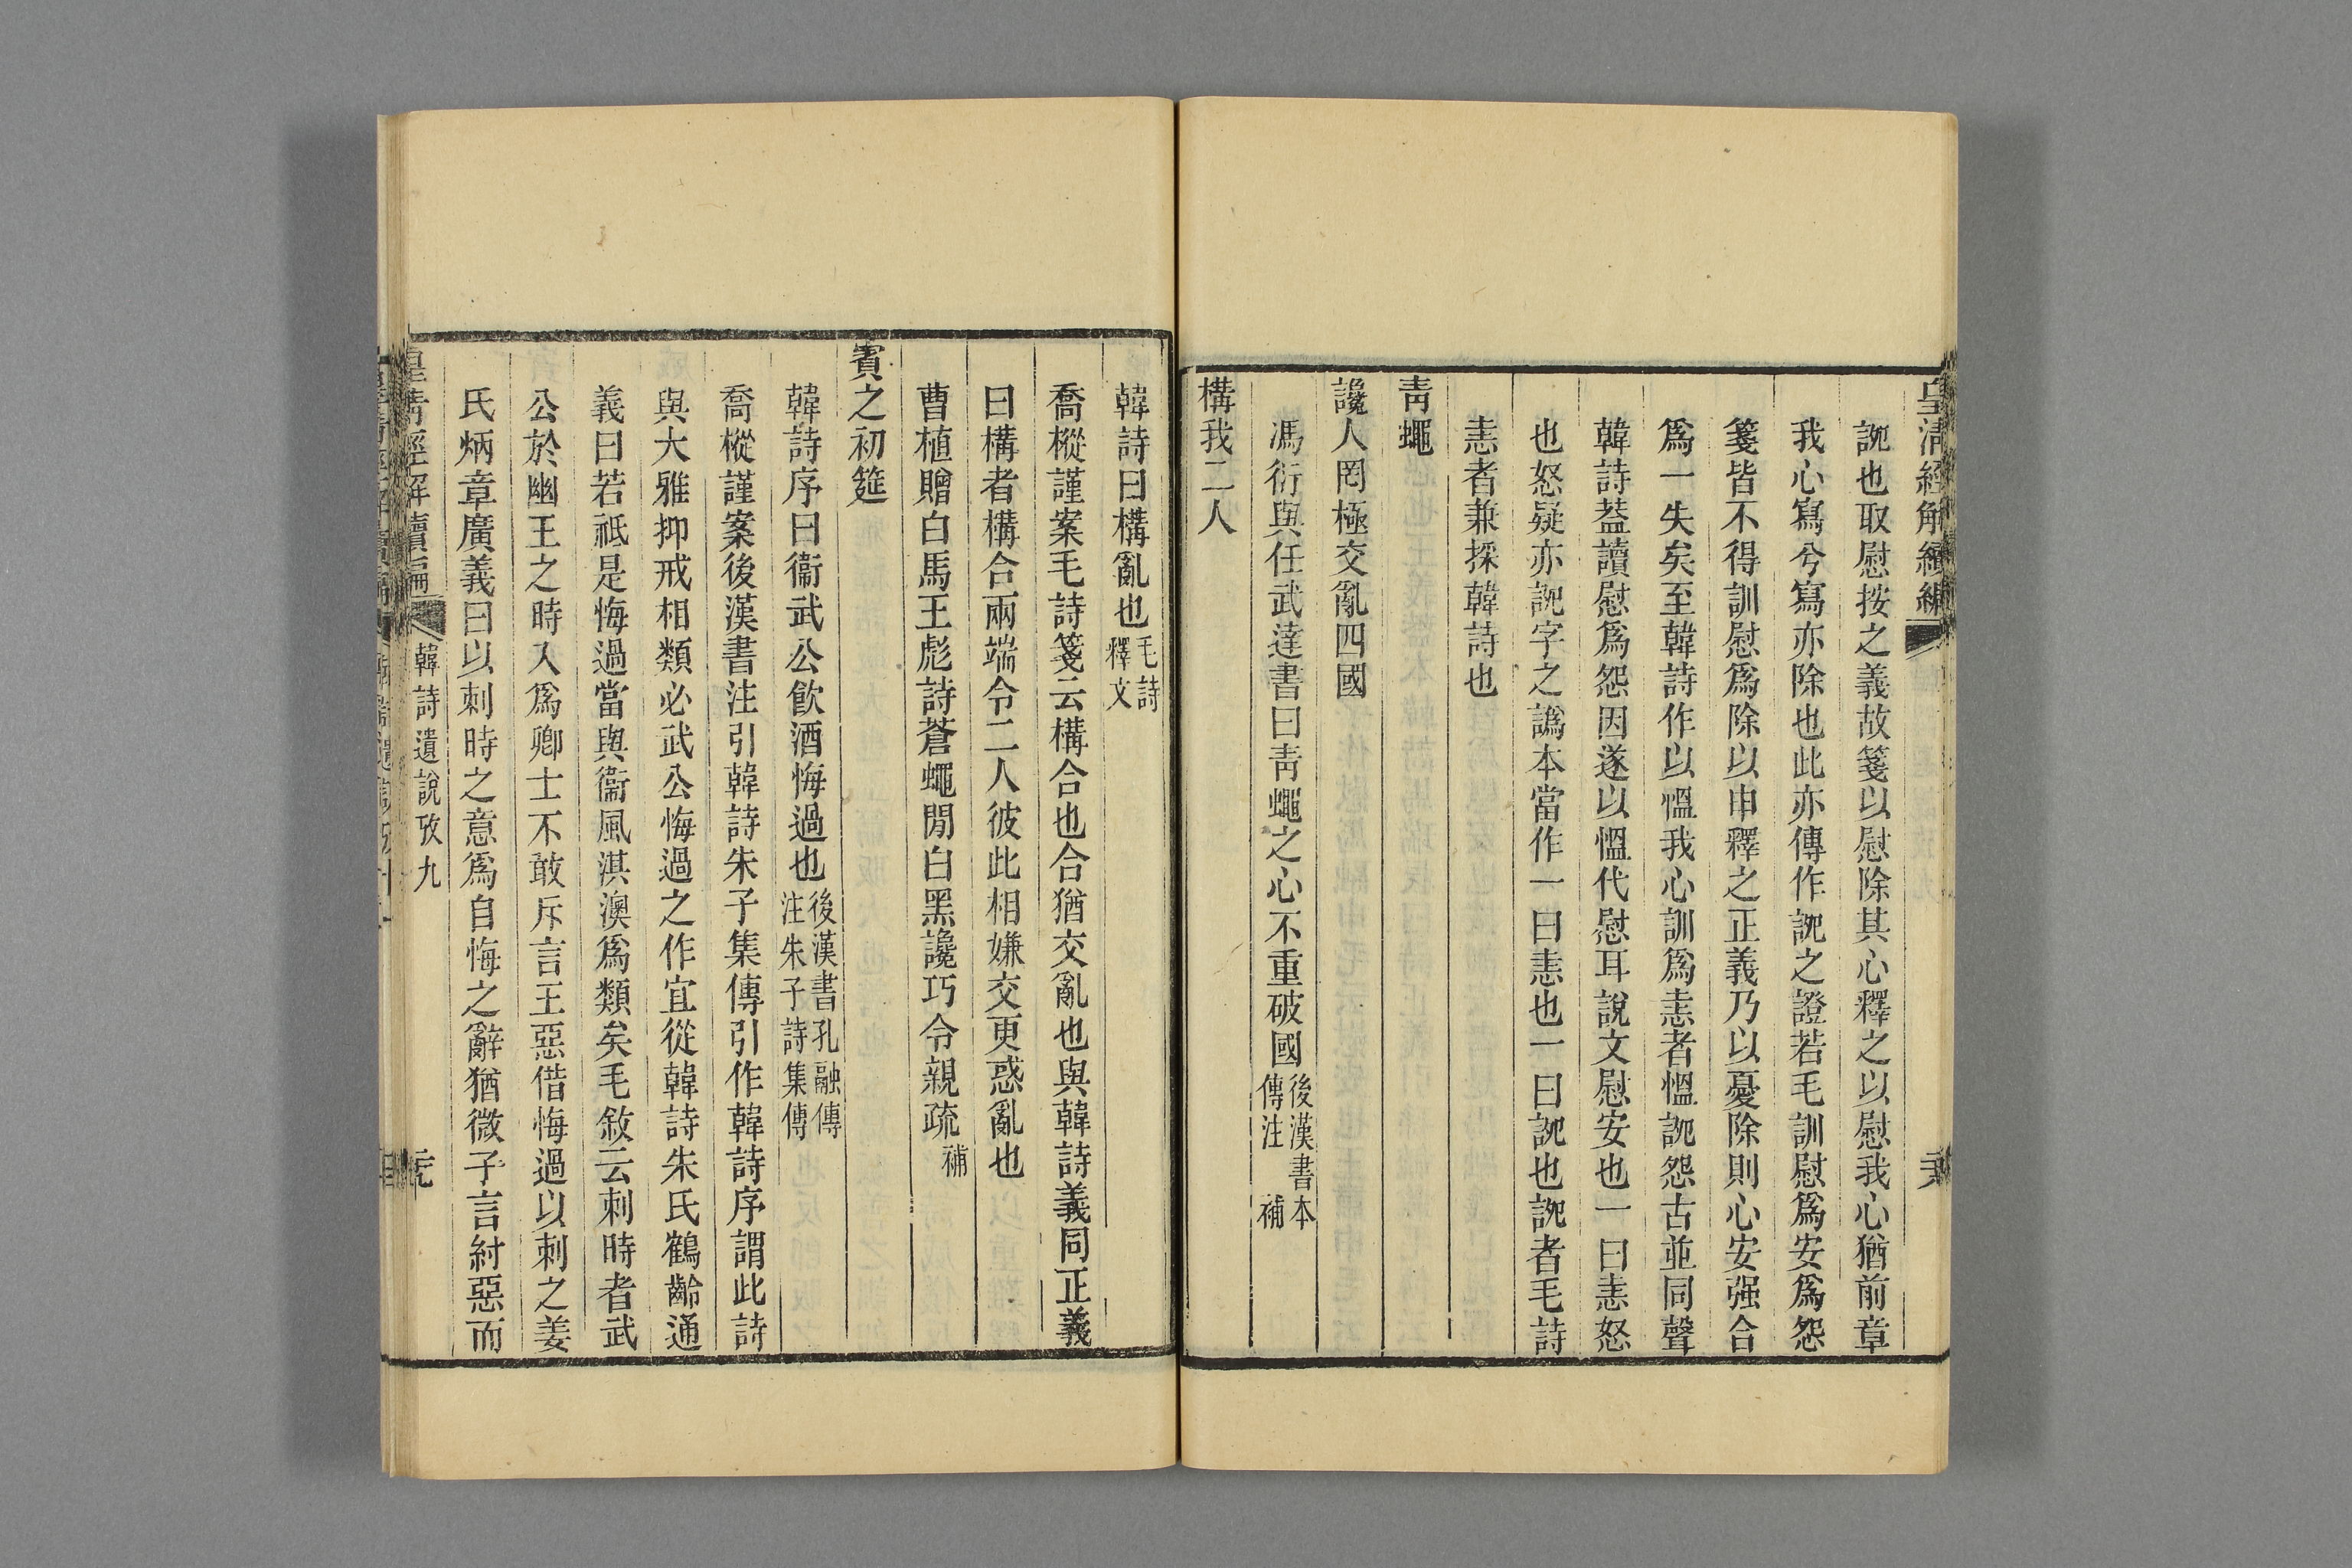 皇淸經解續編
詑也取慰按之義故箋以慰除其心釋之以慰我心猶前章
我心寫兮寫亦除也此亦傳作詑之證若毛訓慰爲安爲怨
箋皆不得訓慰爲除以申釋之正義乃以憂除則心安强合
爲一失矣至韓詩作以愠我心訓爲恚者愠詑怨古並同聲
韓詩葢讀慰爲怨因遂以愠代慰耳說文慰安也一曰恚怒
也怒疑亦詑字之譌本當作一曰恚也一曰詑也詑者毛詩
恚者兼採韓詩也
靑蠅
讒人罔極交亂四國
馮衍與任武達書曰靑蠅之心不重破國後漢書本傳注 補
構我二人
韓詩曰構亂也毛詩釋文
喬樅謹案毛詩箋云構合也合猶交亂也與韓詩義同正義
曰構者構合兩端令二人彼此相嫌交更惑亂也
曹植贈白馬王彪詩蒼蠅閒白黑讒巧令親疏補
賓之初筵
韓詩序曰衞武公飮酒悔過也後漢書孔融傳注朱子詩集傳
喬樅謹案後漢書注引韓詩朱子集傳引作韓詩序謂此詩
與大雅抑戒相類必武公悔過之作宜從韓詩朱氏鶴齡通
義曰若祇是悔過當與衞風淇澳爲類矣毛敘云刺時者武
公於幽王之時入爲卿士不敢斥言王惡偕悔過以刺之姜
氏炳章廣義曰以刺時之意爲自悔之辭猶微子言紂惡而
皇淸經解續編 韓詩遺說攷九